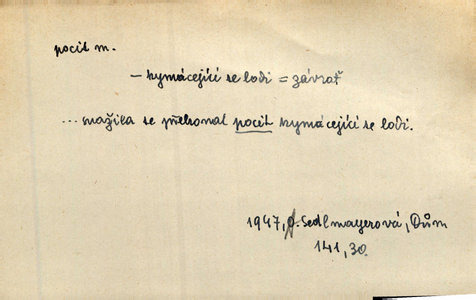 pocit m.
– kymácející se lodi = závrať
... snažila se překonat pocit kymácející se lodi.
1947, Sedlmayerová, Dům
141, 30.